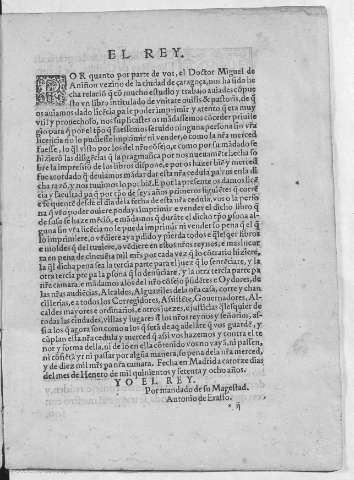 EL REY.
POR quanto por parte de vos, el Doctor Miguel de
Aniñon vezino de la ciudad de çaragoça, nos ha sido he
cha relació q̃ cõ mucho estudio y trabajo auiades cõpue
sto vn libro intitulado de vnitate ouilis & pastoris, de q̃
os auiamos dado licẽcia pa le poder imprimir y atento q̃ era muy
vtil y prouechoso, nos suplicastes os mãdassemos cõceder priuile
gio para q̃ por el tp̃o q̃ fuessemos seruido ninguna persona sin vr̃a
licẽcia no lo pudiesse imprimir ni vender, o como la nr̃a merced
fuesse, lo qual visto por los del nr̃o cõsejo, e como por su mãdado se
hizierõ las diligẽcias q̃ la pragmatica por nos nueuamẽte hecha so
bre la impressió de los libros dispone, e por os hazer biẽ y merced
fue acordado q̃ deuiamos mãdar dar esta nr̃a cedula pa vos en la di
cha razõ, y nos tuuimos lo por biẽ. E por la presente os damos licẽ
cia y facultad pa q̃ por tp̃o de seys años primeros siguiẽtes q̃ corrẽ
e se quentẽ desde el dia de la fecha de esta nr̃a cedula, vos o la persó
na q̃ vr̃o poder ouiere podays imprimir e vender el dicho libro q̃
de suso se haze mẽció, e mãdamos q̃ durãte el dicho tp̃o psona al
guna sin vr̃a licẽcia no le pueda imprimir ni vender so pena el q̃
lo imprimiere, o vẽdiere aya pdido y pierda todos e qlesqer libros
e moldes q̃ del tuuiere, o vẽdiere en estos nr̃os reynos, e mas incur
ra en pena de cincuẽta mil mrs por cada vez q̃ lo cõtrario hiziere,
la ql dicha pena sea la tercia parte para el juez q̃ lo sentẽciare, y la
otra tercia pte pa la psona q̃ lo denũciare, y la otra tercia parte pa
nr̃a camara. e mãdamos a los del nr̃o cõsejo psidẽte e Oydores, de
las nr̃as audiẽcias, Alcaldes, Alguaziles de la nr̃a casa, corte y chan
cillerias, e a todos los Corregidores, Assistẽte, Gouernadores, Al-
caldes mayores e ordinarios, e otros juezes, e justicias qlesquier de
todas las ciudades, villas y lugares d̃ los nr̃os reynos y señorios, assi
a los q̃ agora son como a los q̃ serã de aq̃ adelãte q̃ vos guardẽ, y
cũplan esta nr̃a cedula y merced q̃ assi vos hazemos y contra el te
nor y forma della, ni de lo en ella cõtenido vos no vayã, ni passen,
ni cõsiẽtã yr ni passar por algũa manera, so pena de la nr̃a merced,
y de diez mil mrs pa nr̃a camara. Fecha en Madrid a catorze dias
del mes de Henero de mil quinientos y setenta y ocho años.
YO EL REY.
Por mandado de su Magestad.
Antonio de Erasso.